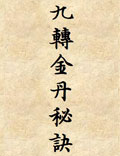 九轉金丹秘訣